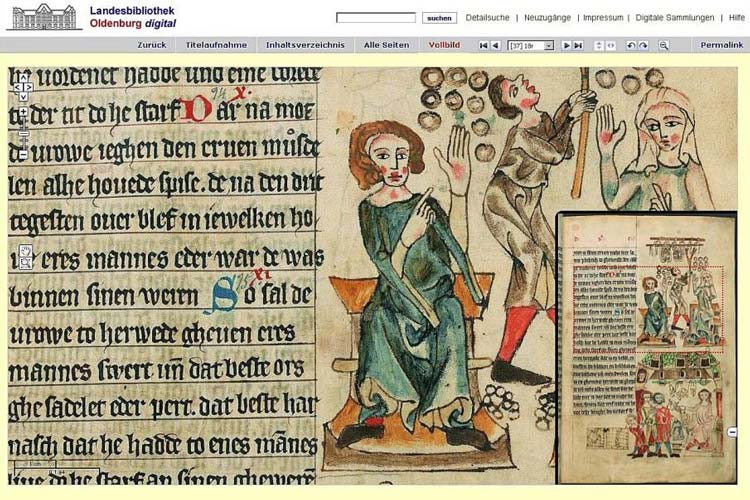 Landesbibliothek
Oldenburg digital
suchen
Detailsuche | Neuzugänge | Impressum | Digitale Sammlungen | Hilfe
Zurück Titelaufnahme Inhaltsverzeichnis Alle Seiten Vollbild [37] 18r Permalink
hir vordenet hadde und eine
to der tit do he starf Dar na mot
de vrowe ieghen den erven musde
len alle hovede spise. de na den drit
tegesten over blef in iewelken ho
ve eres mannes eder war he was
binnen sinen weren So sal de
vrowe to herwede gheven eres
mannes swert uñ dat beste ors
ghe sadelet eder pert. dat beste har
nasch dat he hadde to enes mañes
live do he starf an sinen gheweren